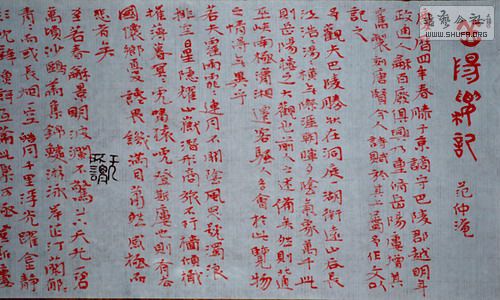 岳陽樓記
范仲淹
慶曆四年春滕子京謫守巴陵郡越明年
政通人和百廢俱興乃重修岳陽樓增其
舊製刻唐賢今人詩賦於其上屬予作文以
記之
予觀夫巴陵勝狀在洞庭一湖銜遠山吞長
江浩浩湯湯橫無際涯朝暉夕陰氣象萬千此
則岳陽樓之大觀也前人之述備矣然則北通
巫峽南極瀟湘遷客騷人多會於此覽物
之情得無異乎
若夫霪雨霏霏連月不開陰風怒號濁浪
排空日星隱耀山嶽潛形商旅不行檣傾楫
摧薄暮冥冥虎嘯猿啼登斯樓也則有去
國懷鄉憂讒畏譏滿目蕭然感極而
悲者矣
至若春和景明波瀾不驚上下天光一碧
萬頃沙鷗翔集錦鱗游泳岸芷汀蘭郁郁
青青而或長煙一空皓月千里浮光躍金靜
影沉璧漁歌互答此樂何極登斯樓
WWW.SHUFA.ORG